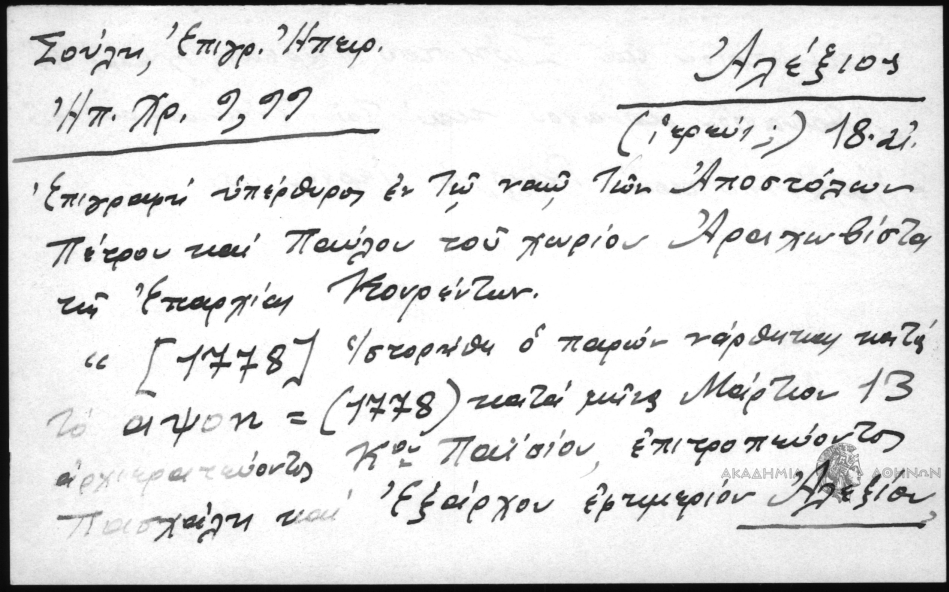 Σούλη, Ἐπιγρ. Ἠπειρ.
Ἀλέξιος
Ἠπ. Χρ. 9, 99
(ἱερεύς;) 18. αἰ.
Ἐπιγραφή ὑπέρθυρος ἐν τῷ ναῷ τῶν Ἀποστόλων
Πέτρου καί Παύλου τοῦ χωρίου Ἀραχωβίστα
τῆς Ἐπαρχίας Κουρέντων.
"[1778] Ἱστορήθη ὁ παρών νάρθηκας κατά
τό αψοη = (1778) κατά μῆνα Μάρτιον 13
ἀρχιερατεύοντος Κου Παϊσίου, ἐπιτροπεύοντος
Πασχάλη καί Ἐξάρχου ἐφημερίου Ἀλεξίου,
ΑΚΑΔΗΜΙΑ ΑΘΗΝΩΝ